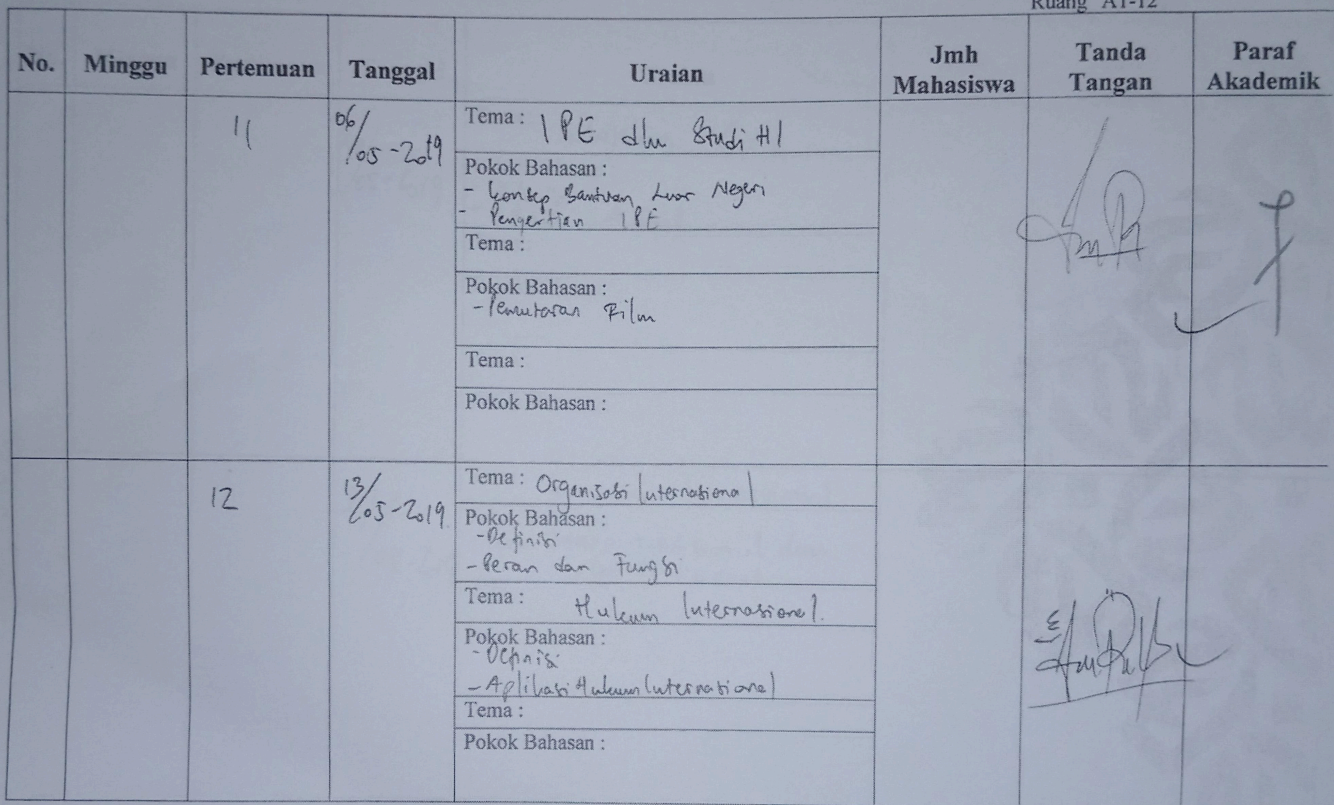 Ruang A1-12
No. Minggu Pertemuan Tanggal Uraian Jmh Mahasiswa Tanda Tangan Paraf Akademik
11 06/05-2019 Tema : IPE dlm Studi HI
Pokok Bahasan :
- Konsep Bantuan Luar Negeri
- Pengertian IPE
Tema :
Pokok Bahasan :
- Pemutaran Film
Tema :
Pokok Bahasan :
12 13/05-2019 Tema : Organisasi Internasional
Pokok Bahasan :
- Definisi
- Peran dan Fungsi
Tema : Hukum Internasional.
Pokok Bahasan :
- Definisi
- Aplikasi Hukum Internasional
Tema :
Pokok Bahasan :